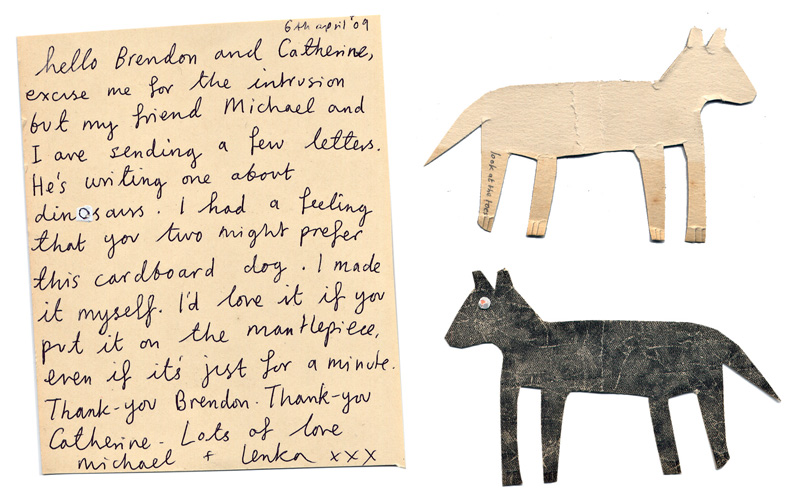 6th april '09
hello Brendon and Catherine,
excuse me for the intrusion
but my friend Michael and
I are sending a few letters.
He's writing one about
dinosaurs. I had a feeling
that you two might prefer
this cardboard dog. I made
it myself. I'd love it if you
put it on the mantlepiece,
even if it's just for a minute.
Thank-you Brendon. Thank-you
Catherine. Lots of love
michael + lenka xxx
look at the toes